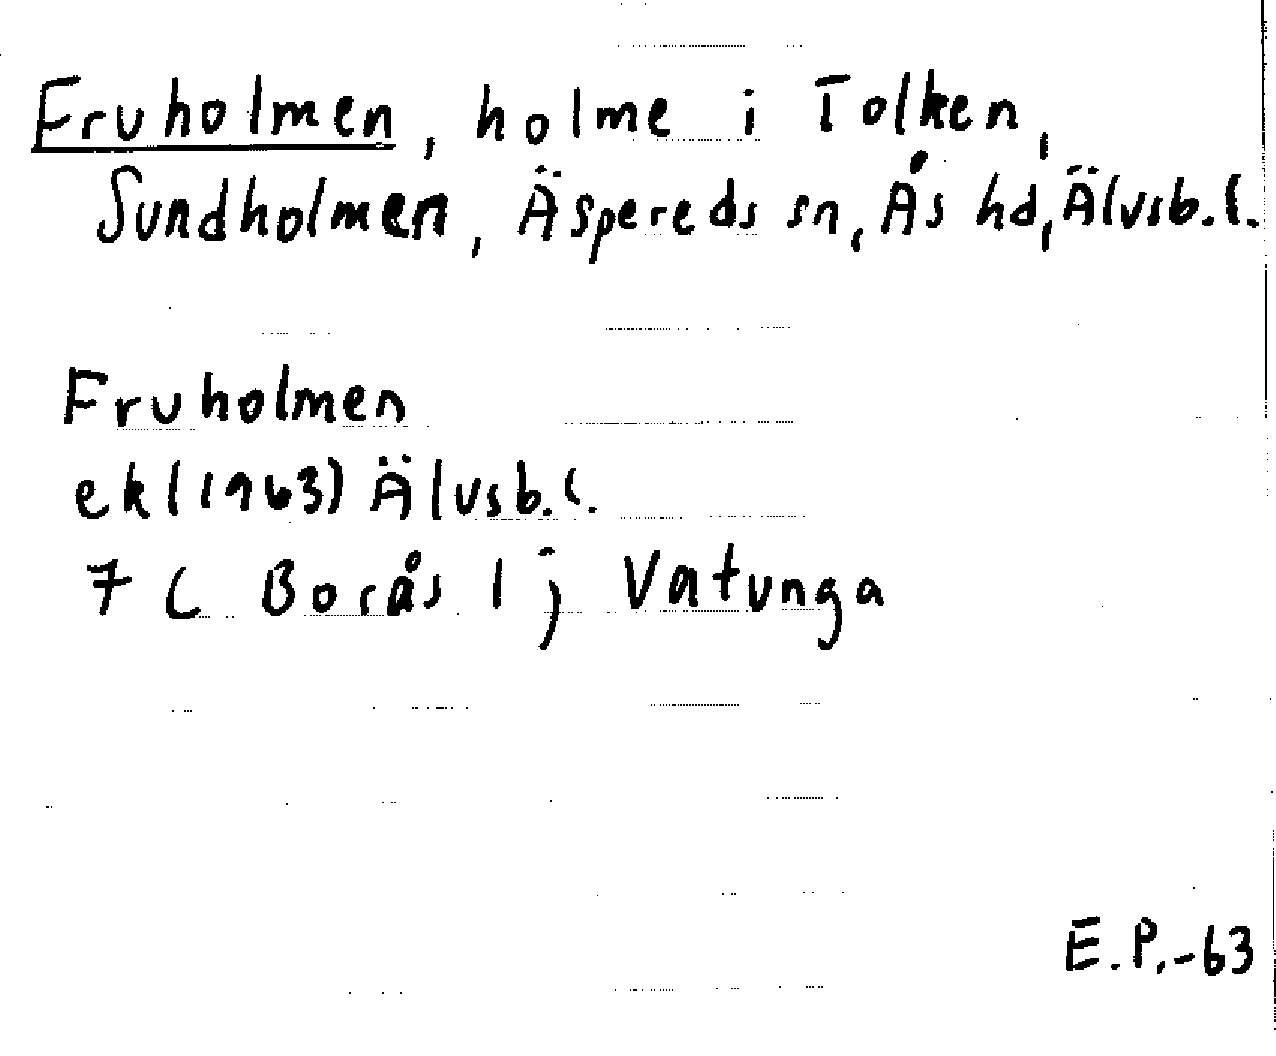 Fruholmen, holme i Tolken,
Sundholmen, Äspereds sn, Ås hd, Älvsb.l.
Fruholmen
ek (1963) Älvsb.l.
7 C Borås 1 j Vatunga
E.P.-63